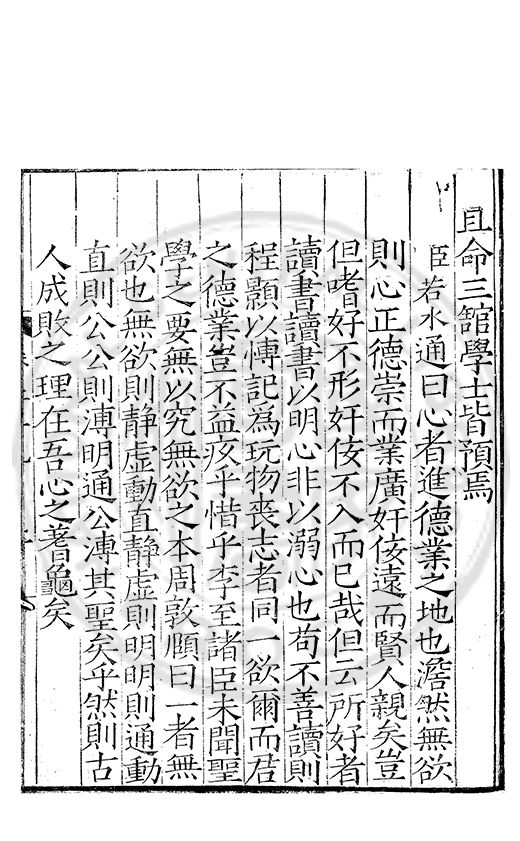 且命三館學士皆預焉
臣若水通曰心者進德業之地也澹然無欲
則心正德崇而業廣奸佞遠而賢人親矣豈
但嗜好不形奸佞不入而已哉但云所好者
讀書讀書以明心非以溺心也苟不善讀則
程顥以博記為玩物喪志者同一欲爾而君
之德業豈不益疚乎惜乎李至諸臣未聞聖
學之要無以究無欲之本周敦頤曰一者無
欲也無欲則静虚動直静虚則明明則通動
直則公公則溥明通公溥其聖矣乎然則古
人成敗之理在吾心之蓍龜矣